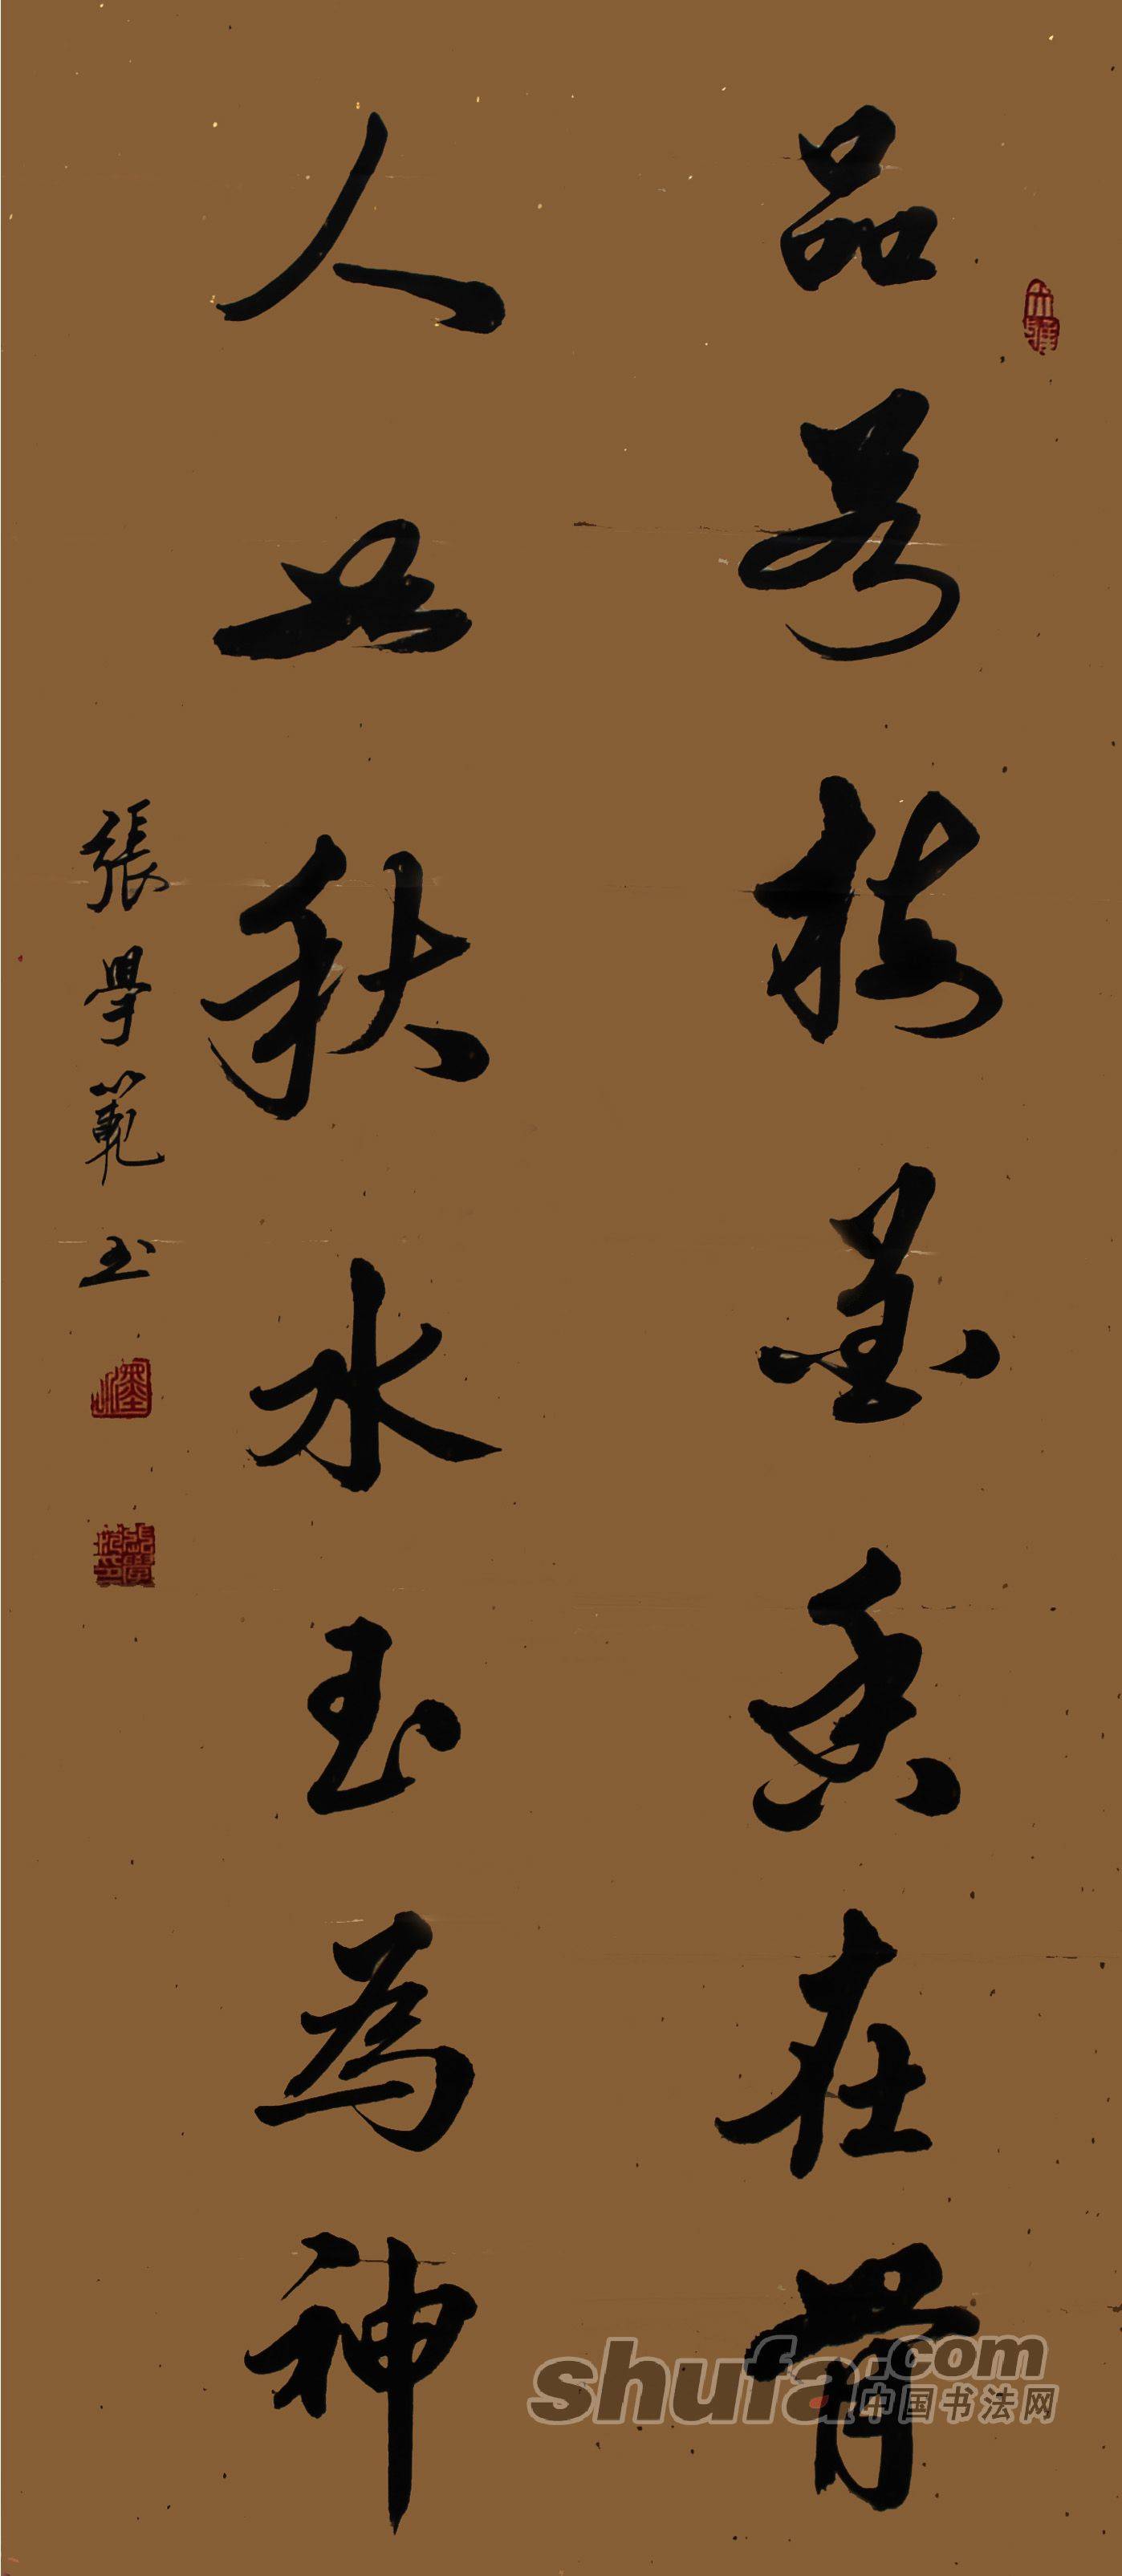 品若梅花香在骨
人如秋水玉為神
張學範书
shufa.com
中国书法网